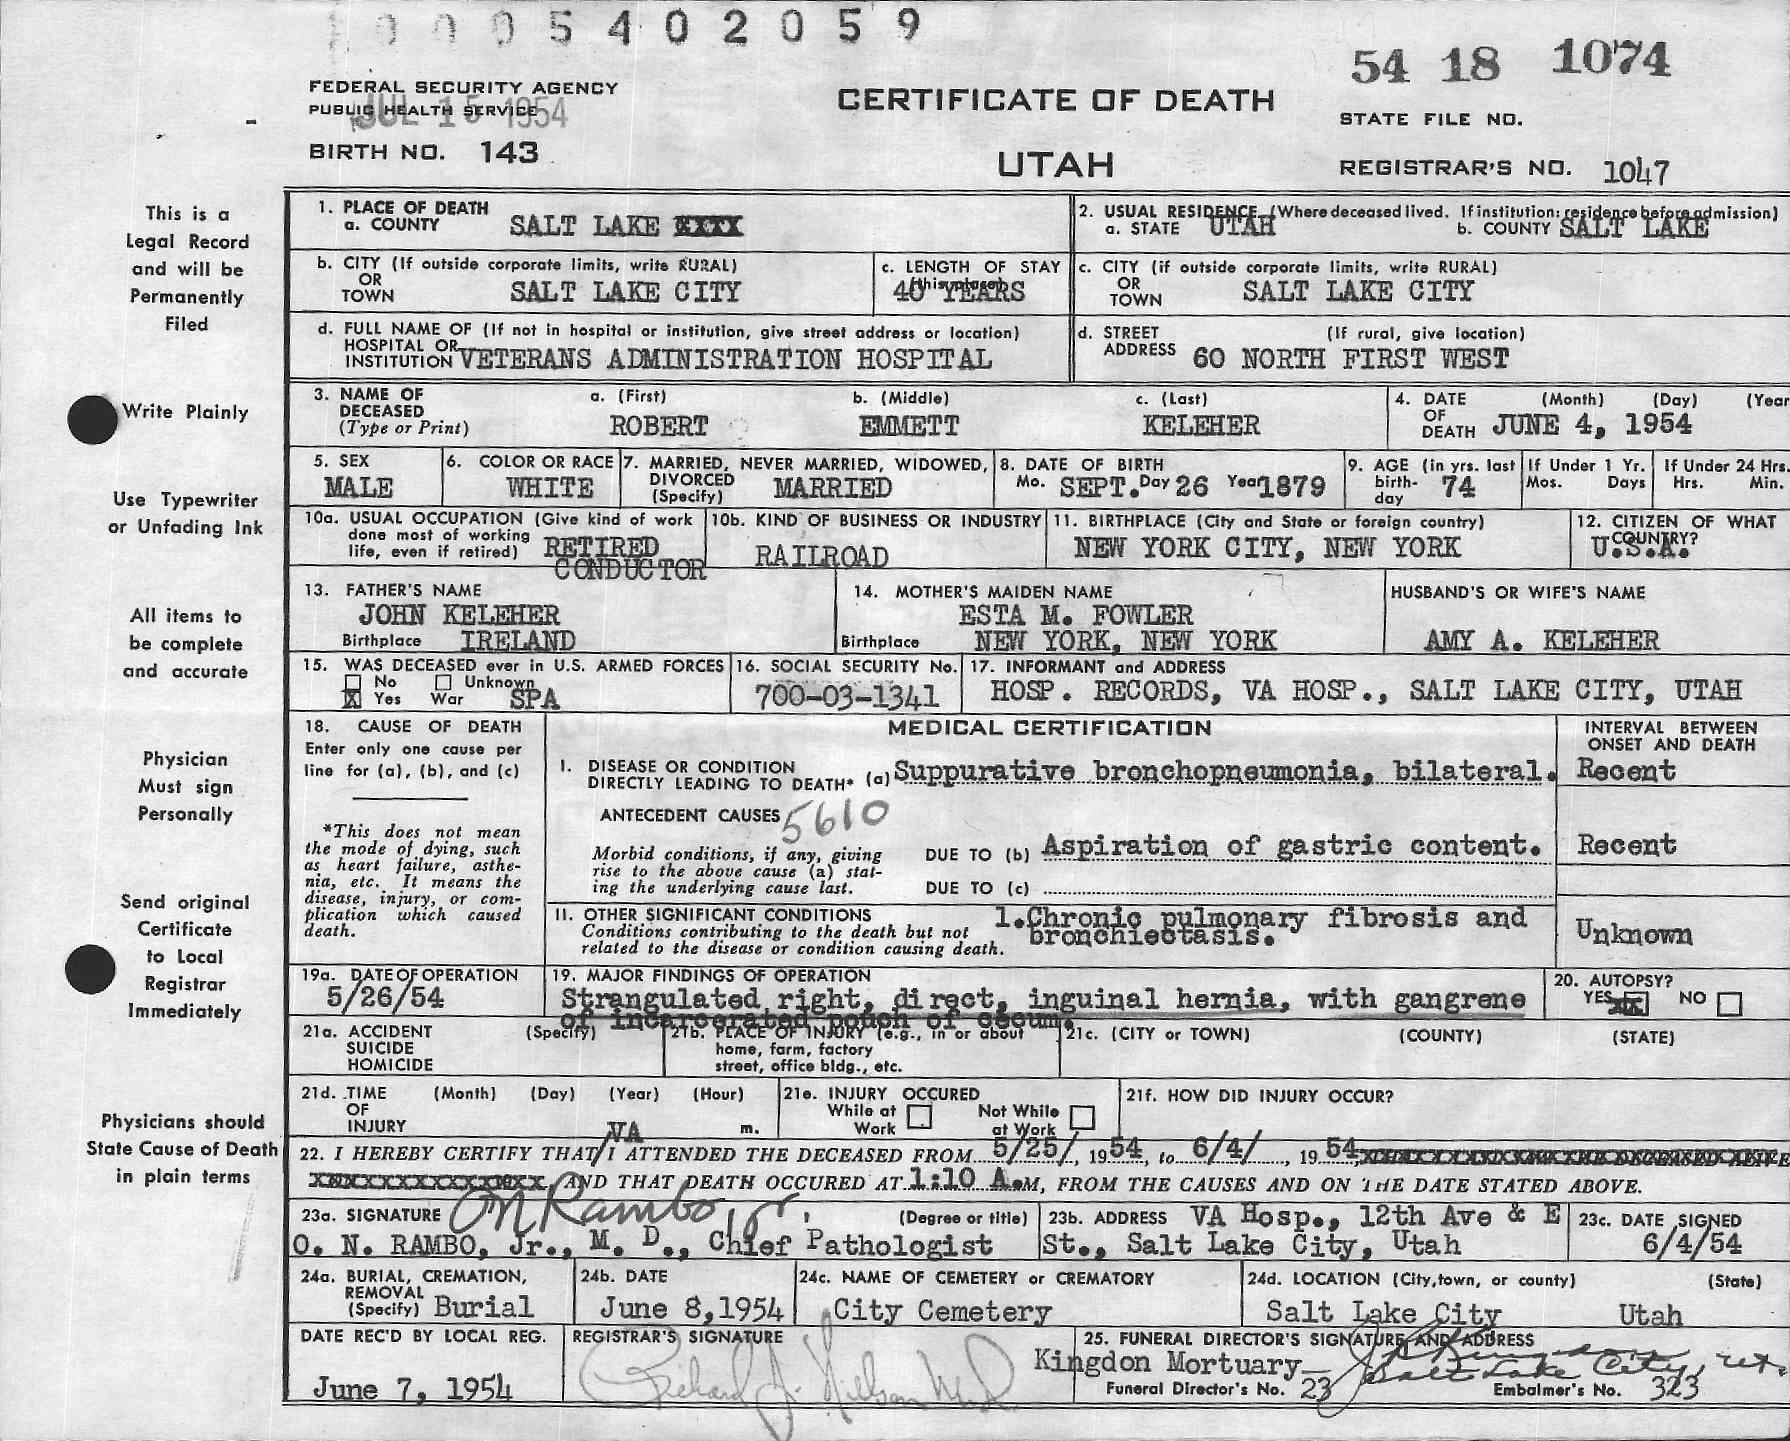 0 0 0 5 4 0 2 0 5 9
54 18 1074
FEDERAL SECURITY AGENCY
PUBLIC HEALTH SERVICE
JUL 15 1954
CERTIFICATE OF DEATH
STATE FILE NO.
BIRTH NO. 143
UTAH
REGISTRAR'S NO. 1047
This is a
Legal Record
and will be
Permanently
Filed
Write Plainly
Use Typewriter
or Unfading Ink
All items to
be complete
and accurate
Physician
Must sign
Personally
Send original
Certificate
to Local
Registrar
Immediately
Physicians should
State Cause of Death
in plain terms
1. PLACE OF DEATH
a. COUNTY SALT LAKE XXXX
2. USUAL RESIDENCE (Where deceased lived. If institution: residence before admission)
a. STATE UTAH b. COUNTY SALT LAKE
b. CITY (If outside corporate limits, write RURAL)
OR
TOWN SALT LAKE CITY
c. LENGTH OF STAY
(this place)
40 YEARS
c. CITY (if outside corporate limits, write RURAL)
OR
TOWN SALT LAKE CITY
d. FULL NAME OF (If not in hospital or institution, give street address or location)
HOSPITAL OR
INSTITUTION VETERANS ADMINISTRATION HOSPITAL
d. STREET (If rural, give location)
ADDRESS 60 NORTH FIRST WEST
3. NAME OF
DECEASED
(Type or Print)
a. (First) b. (Middle) c. (Last)
ROBERT EMMETT KELEHER
4. DATE (Month) (Day) (Year
OF
DEATH JUNE 4, 1954
5. SEX
MALE
6. COLOR OR RACE
WHITE
7. MARRIED, NEVER MARRIED, WIDOWED,
DIVORCED
(Specify) MARRIED
8. DATE OF BIRTH
Mo. SEPT. Day 26 Year 1879
9. AGE (in yrs. last
birth-
day 74
If Under 1 Yr.
Mos. Days
If Under 24 Hrs.
Hrs. Min.
10a. USUAL OCCUPATION (Give kind of work
done most of working
life, even if retired) RETIRED
CONDUCTOR
10b. KIND OF BUSINESS OR INDUSTRY
RAILROAD
11. BIRTHPLACE (City and State or foreign country)
NEW YORK CITY, NEW YORK
12. CITIZEN OF WHAT
COUNTRY?
U.S.A.
13. FATHER'S NAME
JOHN KELEHER
Birthplace IRELAND
14. MOTHER'S MAIDEN NAME
ESTA M. FOWLER
Birthplace NEW YORK, NEW YORK
HUSBAND'S OR WIFE'S NAME
AMY A. KELEHER
15. WAS DECEASED ever in U.S. ARMED FORCES
No Unknown
X Yes War SPA
16. SOCIAL SECURITY No.
700-03-1341
17. INFORMANT and ADDRESS
HOSP. RECORDS, VA HOSP., SALT LAKE CITY, UTAH
18. CAUSE OF DEATH
Enter only one cause per
line for (a), (b), and (c)
*This does not mean
the mode of dying, such
as heart failure, asthe-
nia, etc. It means the
disease, injury, or com-
plication which caused
death.
MEDICAL CERTIFICATION
INTERVAL BETWEEN
ONSET AND DEATH
I. DISEASE OR CONDITION
DIRECTLY LEADING TO DEATH* (a) Suppurative bronchopneumonia, bilateral. Recent
ANTECEDENT CAUSES 5610
Morbid conditions, if any, giving
rise to the above cause (a) stat-
ing the underlying cause last.
DUE TO (b) Aspiration of gastric content. Recent
DUE TO (c)
II. OTHER SIGNIFICANT CONDITIONS
Conditions contributing to the death but not
related to the disease or condition causing death.
1. Chronic pulmonary fibrosis and
bronchiectasis.
Unknown
19a. DATE OF OPERATION
5/26/54
19. MAJOR FINDINGS OF OPERATION
Strangulated right, direct, inguinal hernia, with gangrene
of incarcerated pouch of cecum.
20. AUTOPSY?
YES XX NO
21a. ACCIDENT (Specify)
SUICIDE
HOMICIDE
21b. PLACE OF INJURY (e.g., in or about
home, farm, factory
street, office bldg., etc.
21c. (CITY or TOWN) (COUNTY) (STATE)
21d. TIME (Month) (Day) (Year) (Hour)
OF
INJURY m.
21e. INJURY OCCURED
While at Work
Not While at Work
21f. HOW DID INJURY OCCUR?
VA
22. I HEREBY CERTIFY THAT/I ATTENDED THE DECEASED FROM 5/25/, 1954, to 6/4/, 19 54,
AND THAT DEATH OCCURED AT 1:10 A.M, FROM THE CAUSES AND ON THE DATE STATED ABOVE.
23a. SIGNATURE ON Rambo, jr. (Degree or title)
O. N. RAMBO, Jr., M. D., Chief Pathologist
23b. ADDRESS VA Hosp., 12th Ave & E
St., Salt Lake City, Utah
23c. DATE SIGNED
6/4/54
24a. BURIAL, CREMATION,
REMOVAL
(Specify) Burial
24b. DATE
June 8, 1954
24c. NAME OF CEMETERY or CREMATORY
City Cemetery
24d. LOCATION (City, town, or county) (State)
Salt Lake City Utah
DATE REC'D BY LOCAL REG.
June 7, 1954
REGISTRAR'S SIGNATURE
Richard J. Nillson M.D.
25. FUNERAL DIRECTOR'S SIGNATURE AND ADDRESS
Kingdon Mortuary
Salt Lake City, Ut.
Funeral Director's No. 23 Embalmer's No. 323